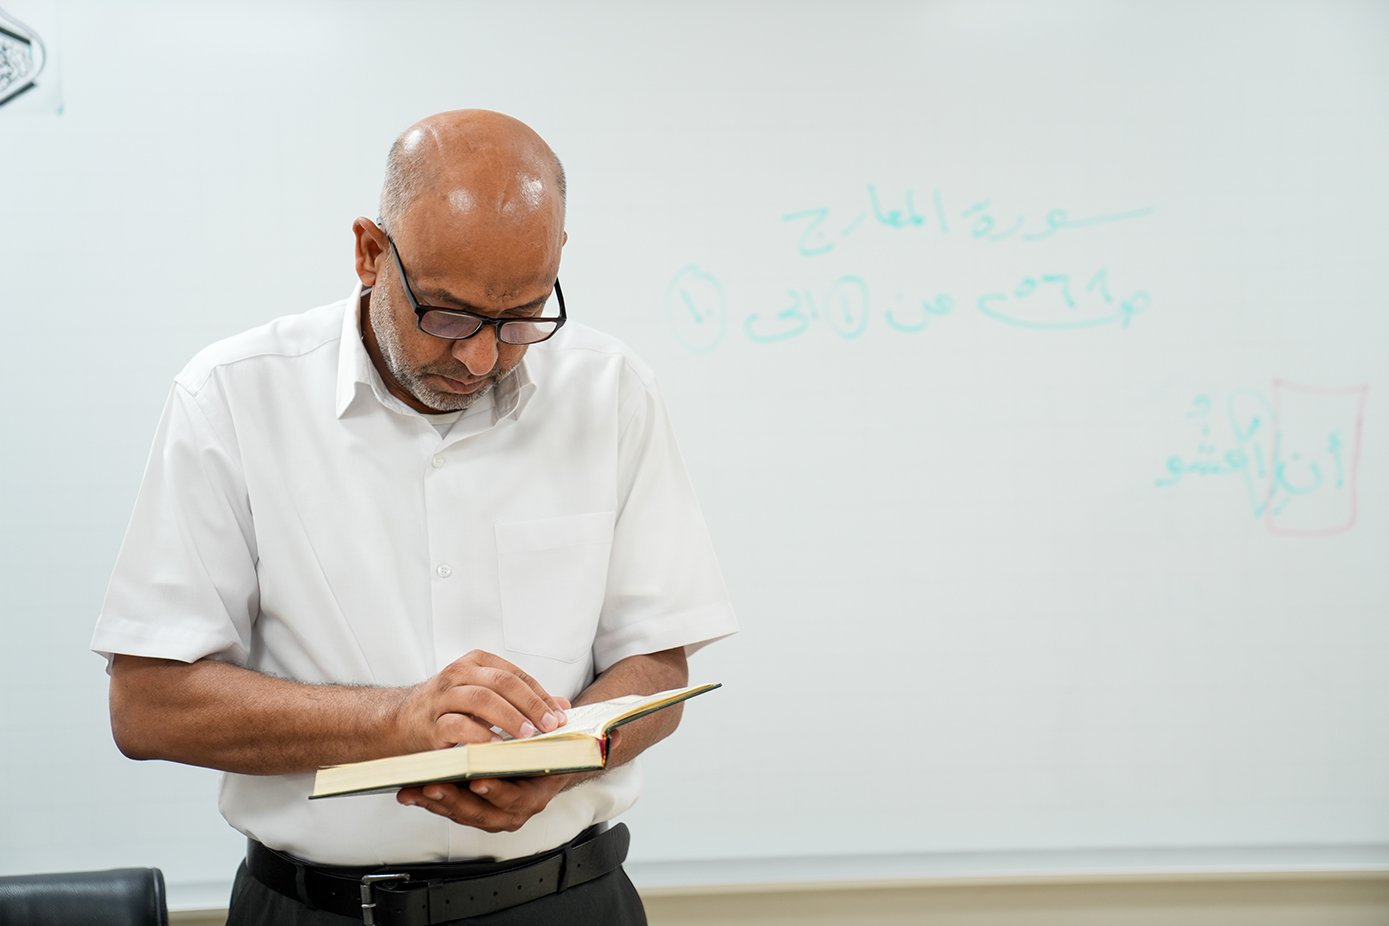 سورة المعارج
ص ٥٦٨ من ١ الى ١٠
أنِ امشو